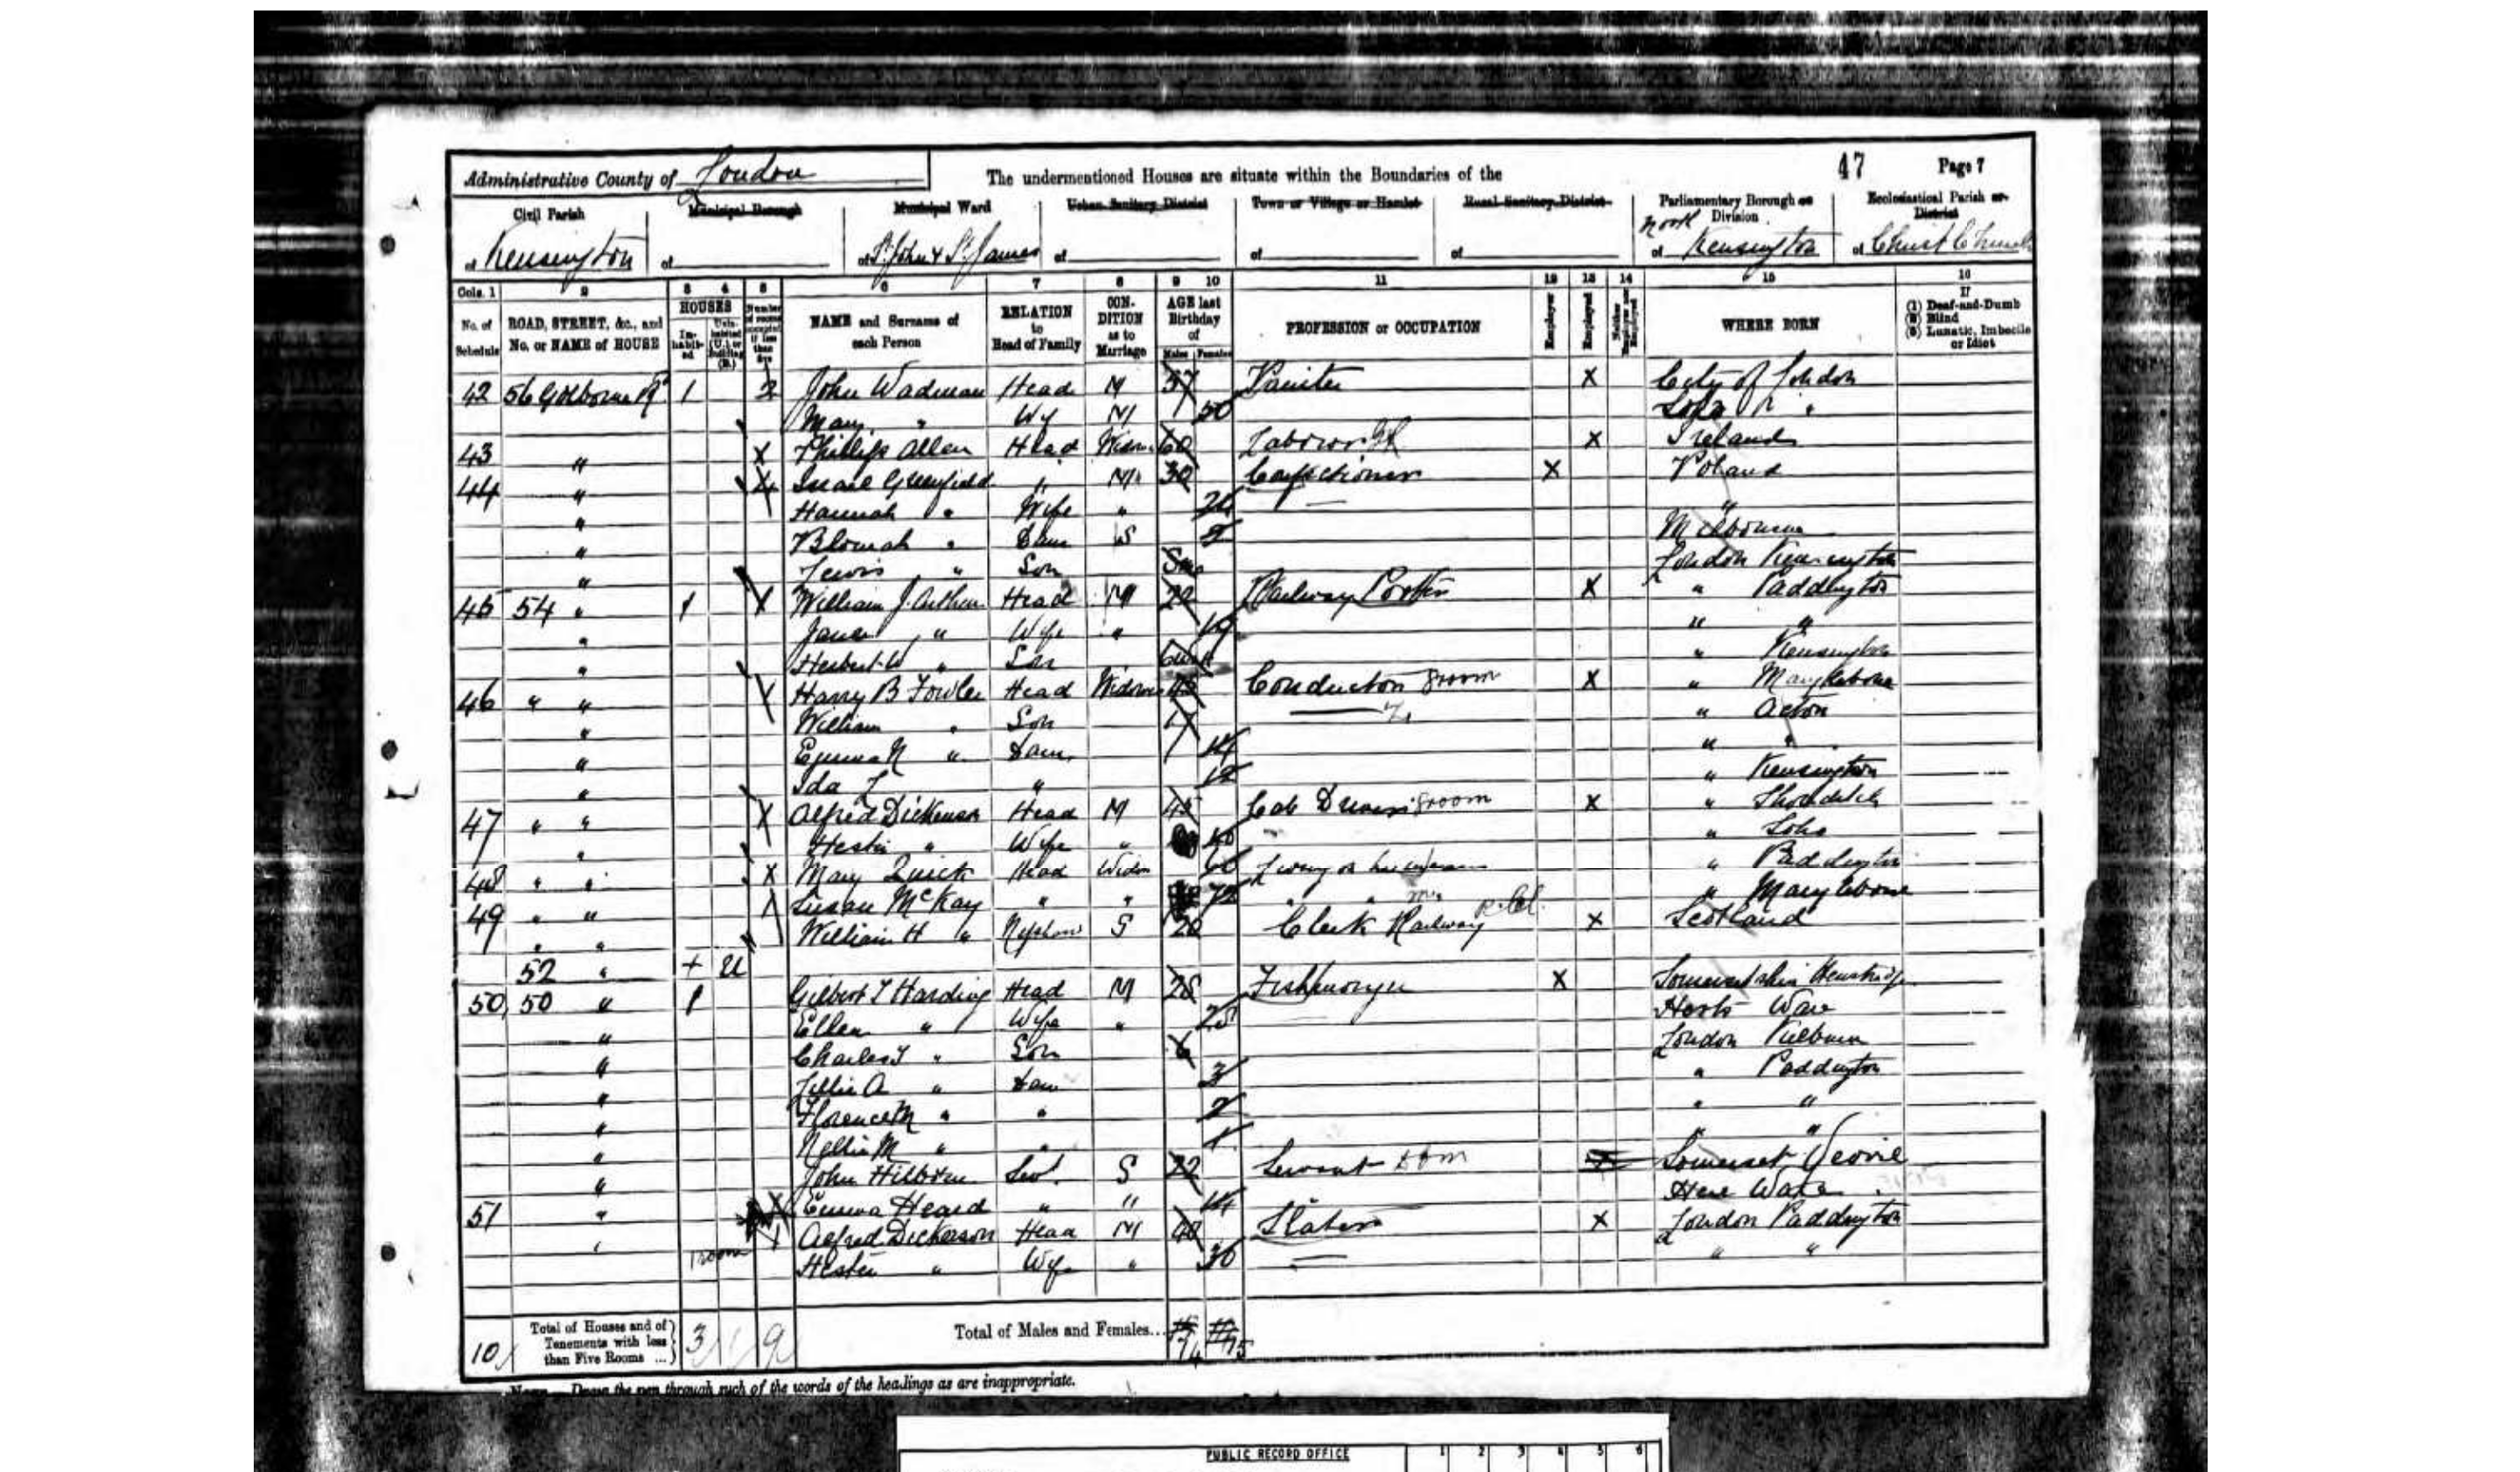 47 Page 7
Administrative County of London The undermentioned Houses are situate within the Boundaries of the
Civil Parish Municipal Borough Municipal Ward Urban Sanitary District Town or Village or Hamlet Rural Sanitary District Parliamentary Borough or Division Ecclesiastical Parish or District
of Kensington of of St. John & St. James of of of North of Kensington of Christ Church
Cols. 1 2 3 4 5 6 7 8 9 10 11 12 13 14 15 16
No. of Schedule ROAD, STREET, &c., and No. or NAME of HOUSE HOUSES Inhabited Uninhabited (U.) or Building (B.) Number of rooms occupied if less than five NAME and Surname of each Person RELATION to Head of Family CONDITION as to Marriage AGE last Birthday of Males Females PROFESSION or OCCUPATION Employer Employed Neither Employer nor Employed WHERE BORN If (1) Deaf-and-Dumb (2) Blind (3) Lunatic, Imbecile or Idiot
42 56 Golborne Rd 1 2 John Wadman Head M 37 Painter X City of London
Mary " Wf M 50
43 " Phillip Allen Head Widr 60 Labourer X Ireland
44 " Israel Greenfield " M 30 Confectioner X Poland
" Hannah " Wife " "
" Blomah " Daur S 2 Melbourne
" Lewis " Son London Kensington
45 54 " 1 William J. Arthur Head M 22 Railway Porter X " Paddington
" Jane " Wife " 19 " "
" Herbert W " Son " Kensington
46 " " Harry B Fowler Head Widower 45 Conductor groom X " Marylebone
" William " Son 17 " Acton
" Emma N " Daur 14 " "
" Ida L " 12 " Kensington
47 " " Alfred Dickenson Head M 45 Cab Driver groom X " Shoreditch
" Hester " Wife " 40 " Soho
48 " " Mary Quick Head Widow Living on her means " Paddington
49 " " Susan McKay " " 72 " " " Marylebone
" " William H " Nephew S 20 Clerk Railway X Scotland
52 " + U
50 50 " 1 Gilbert T Harding Head M 28 Fishmonger X Somersetshire Henstridge
" Ellen " Wife " 25 Herts Ware
" Charles T " Son 6 London Kilburn
" Lillie A " Daur 3 " Paddington
" Florence M " " 2 " "
" Nellie M " " 1 " "
" John Servt. S 22 Servant Dom Somerset Yeovil
" Emma Heard " " 14 Ware
51 " Alfred Dickerson Head M 40 Slater X London Paddington
1 room Hester " Wife " 36 " "
10 Total of Houses and of Tenements with less than Five Rooms ... 3 1 9 Total of Males and Females... 14 15
Note.—Draw the pen through such of the words of the headings as are inappropriate.
PUBLIC RECORD OFFICE 1 2 3 4 5 6